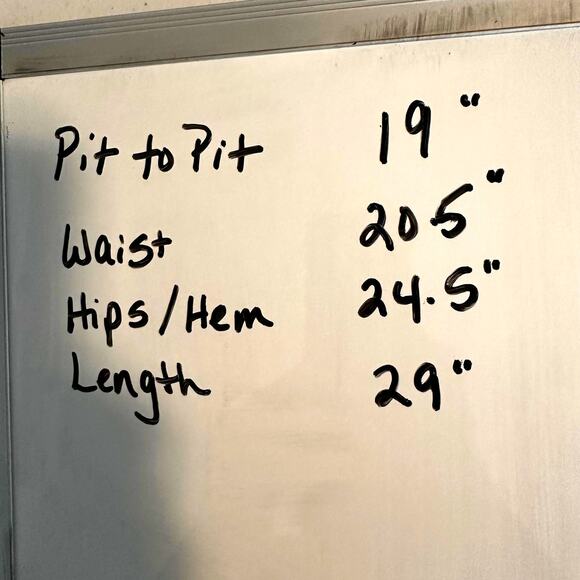 Pit to Pit 19"
Waist 20.5"
Hips/Hem 24.5"
Length 29"